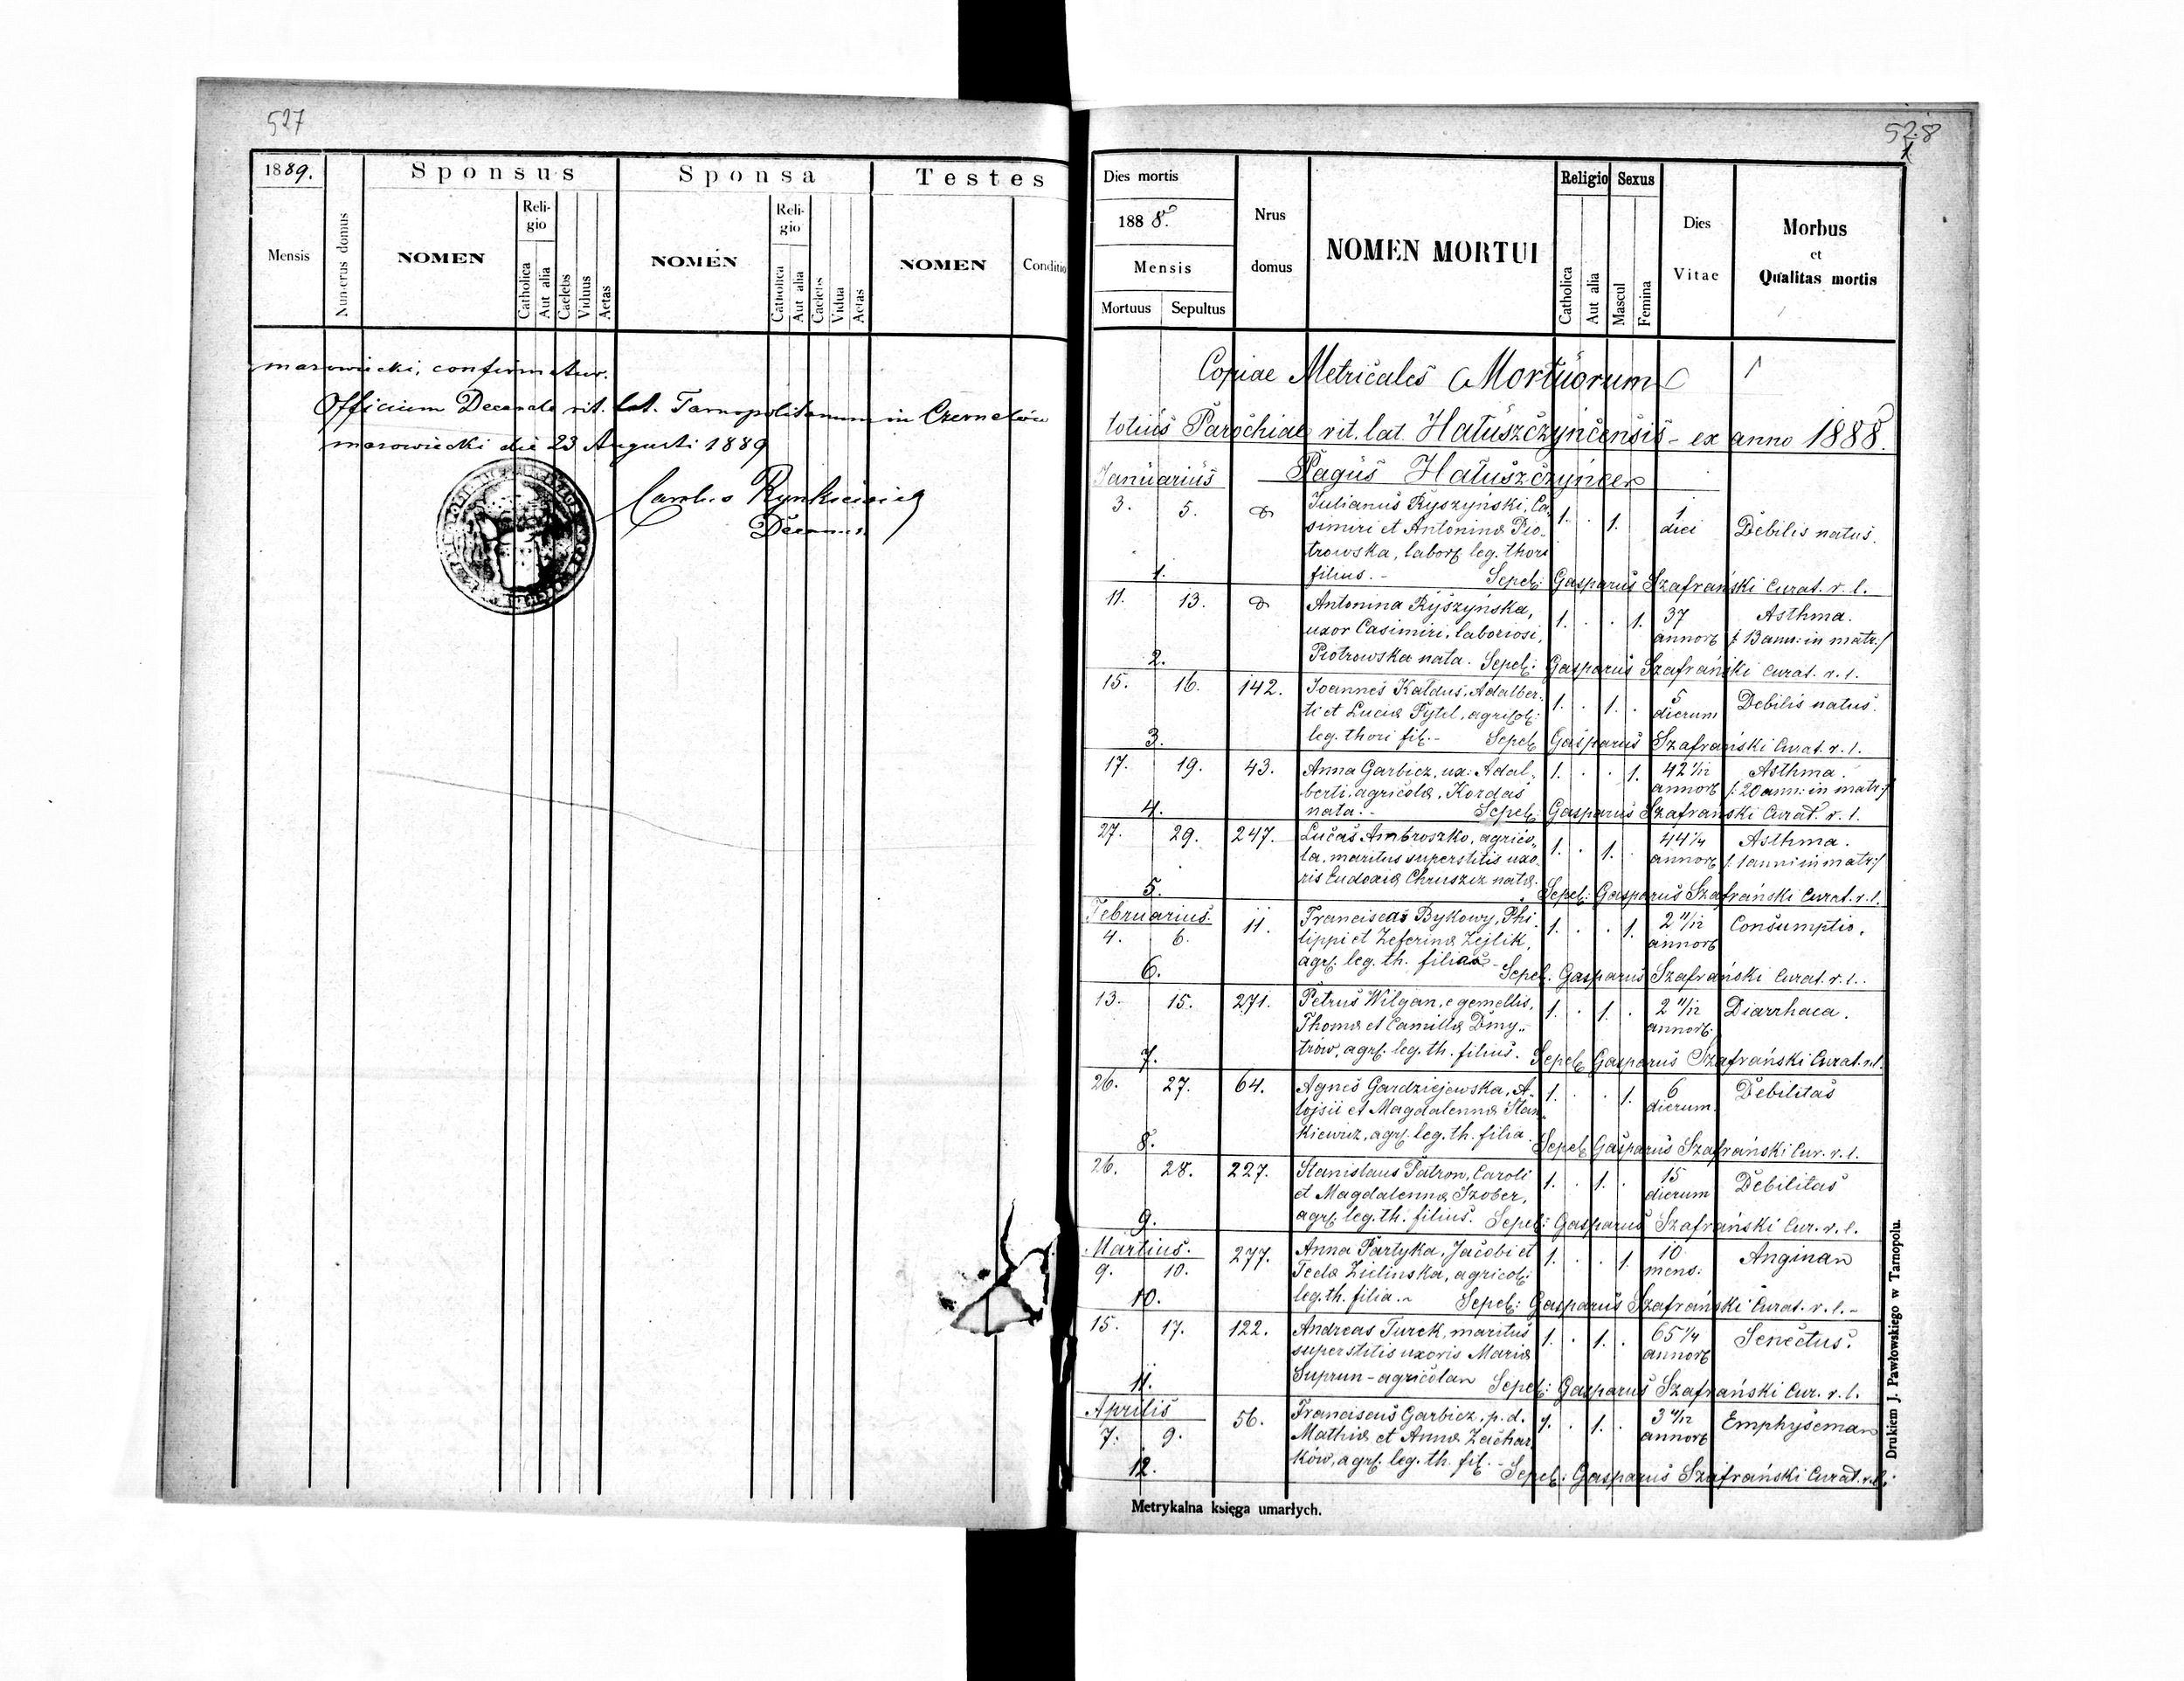 527
1889.
Mensis
Numerus domus
Sponsus
NOMEN
Reli-
gio
Catholica
Aut alia
Caelebs
Viduus
Aetas
Sponsa
NOMEN
Reli-
gio
Catholica
Aut alia
Caelebs
Vidua
Aetas
Testes
NOMEN
Conditio
marowiecki, confirmatur.
Officium Decanale rit. lat. Tarnopolitanum in Czernelów
marowiecki die 23 Augusti 1889
Decanus
528
1
Dies mortis
1888.
Mensis
Mortuus
Sepultus
Nrus
domus
NOMEN MORTUI
Religio
Catholica
Aut alia
Sexus
Mascul
Femina
Dies
Vitae
Morbus
et
Qualitas mortis
Copiae Metricales Mortuorum
totius Parochiae rit. lat. Hałuszczyńcensis - ex anno 1888.
Januarius
Pagus Hałuszczyńce
3. 5. Julianus Ryszyński, Ca- 1. . 1. 1
simiri et Antoninæ Pio- diei Debilis natus.
trowska, labor. leg. thori
1. filius. - Sepel: Gasparus Szafrański Curat. r. l.
11. 13. Antonina Ryszyńska, 1. . . 1. 37 Asthma.
uxor Casimiri, laboriosi, annor. /: 13 ann: in matr:/
2. Piotrowska nata. Sepel: Gasparus Szafrański Curat. r. l.
15. 16. 142. Joannes Kałdus, Adalber- 1. . 1. . 5 Debilis natus.
ti et Luciæ Pytel, agricol: dierum
3. leg. thori fil. - Sepel: Gasparus Szafrański Curat. r. l.
17. 19. 43. Anna Garbicz, ux: Adal- 1. . . 1. 42 1/12 Asthma.
berti, agricolæ, Kordas annor. /: 20 ann: in matr:/
4. nata. - Sepel: Gasparus Szafrański Curat. r. l.
27. 29. 247. Lucas Ambroszko, agrico- 1. . 1. . 44 1/4 Asthma.
la, maritus superstitis uxo- annor. /: 1 anni in matr:/
ris Eudoxiæ Chruszcz natæ.
5. Sepel: Gasparus Szafrański Curat. r. l.
Februarius.
4. 6. 11. Francisca Bykowy, Phi- 1. . . 1. 2 11/12 Consumptio.
lippi et Zeferinæ Zejlik, annor.
6. agr. leg. th. filia - Sepel: Gasparus Szafrański Curat. r. l.
13. 15. 271. Petrus Wilgan, e gemellis, 1. . 1. . 2 11/12 Diarrhaea.
Thomæ et Camillæ Dmy- annor.
7. trów, agr. leg. th. filius. Sepel: Gasparus Szafrański Curat. r. l.
26. 27. 64. Agnes Gardziejewska, A- 1. . . 1. 6 Debilitas
lojsii et Magdalennæ Stan- dierum.
8. kiewicz, agr. leg. th. filia. Sepel: Gasparus Szafrański Cur. r. l.
26. 28. 227. Stanislaus Patron, Caroli 1. . 1. . 15 Debilitas
et Magdalennæ Szober, dierum
9. agr. leg. th. filius. Sepel: Gasparus Szafrański Cur. r. l.
Martius.
9. 10. 277. Anna Partyka, Jacobi et 1. . . 1. 10 Angina
Teclæ Zielinska, agricol: mens:
10. leg. th. filia. - Sepel: Gasparus Szafrański Curat. r. l. -
15. 17. 122. Andreas Turek, maritus 1. . 1. . 65 1/4 Senectus.
superstitis uxoris Mariæ annor.
11. Suprun - agricola Sepel: Gasparus Szafrański Cur. r. l.
Aprilis
7. 9. 56. Franciscus Garbicz, p. d. 1. . 1. . annor. Emphysema
Mathiæ et Annæ Zachar-
12. ków, agr. leg. th. fil. - Sepel: Gasparus Szafrański Curat. r. l.
Metrykalna księga umarłych.
Drukiem J. Pawłowskiego w Tarnopolu.